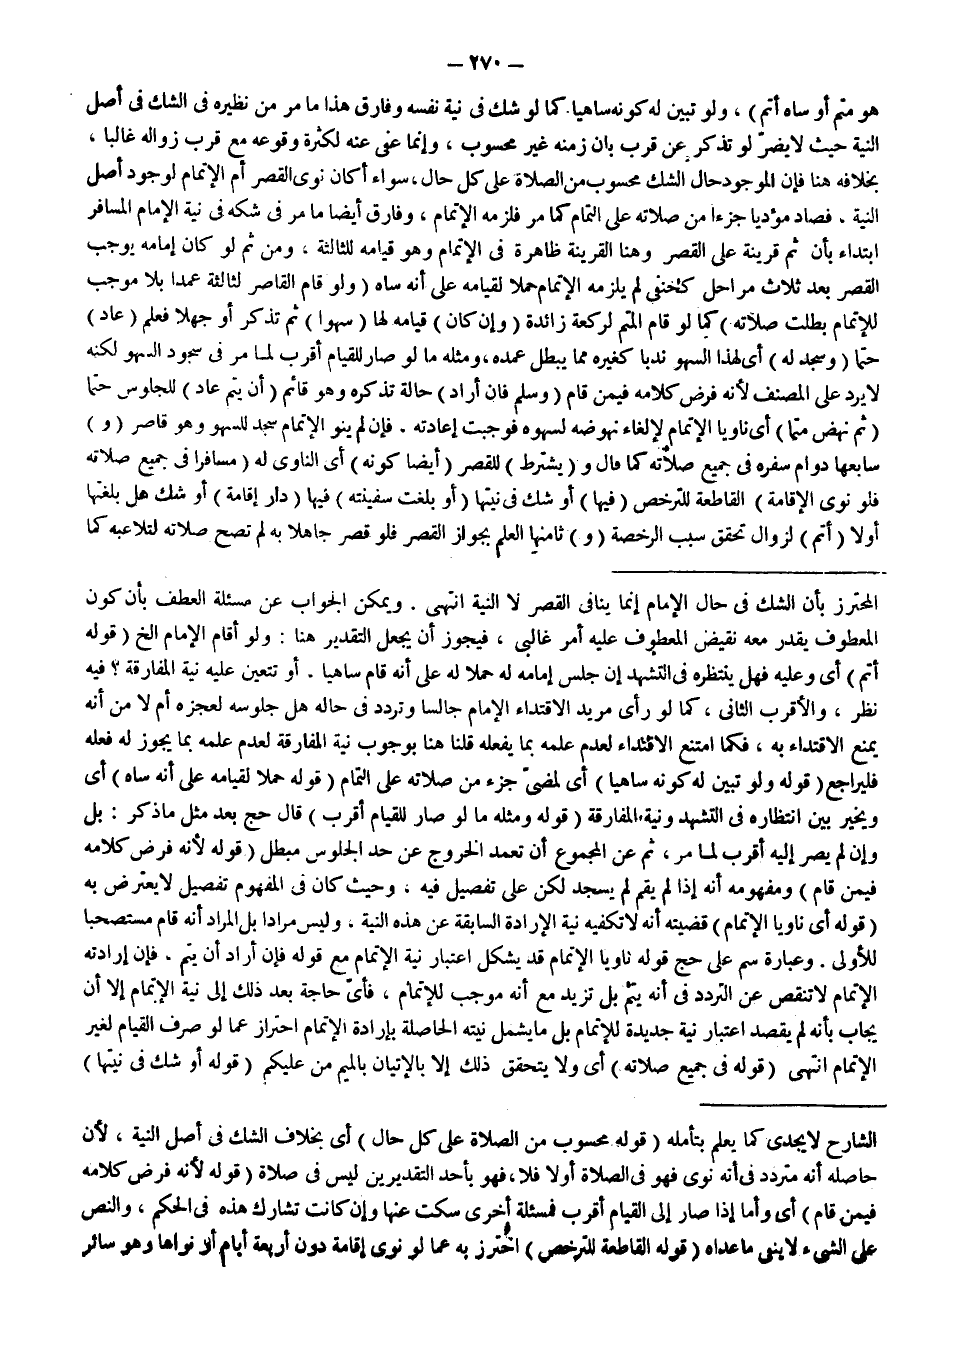 — ٢٧٠ —
هو متم أو ساه أتم ) ، ولو تبين له كونه ساهيا . كما لو شك فى نية نفسه وفارق هذا ما مر من نظيره فى الشك فى أصل
النية حيث لايضرّ لو تذكر عن قرب بان زمنه غير محسوب ، وإنما عفى عنه لكثرة وقوعه مع قرب زواله غالبا ،
بخلافه هنا فإن الموجود حال الشك محسوب من الصلاة على كل حال ، سواء أكان نوى القصر أم الإتمام لوجود أصل
النية . فصاد مؤديا جزءا من صلاته على التمام كما مر فلزمه الإتمام ، وفارق أيضا ما مر فى شكه فى نية الإمام المسافر
ابتداء بأن ثم قرينة على القصر وهنا القرينة ظاهرة فى الإتمام وهو قيامه للثالثة ، ومن ثم لو كان إمامه يوجب
القصر بعد ثلاث مراحل كحنفى لم يلزمه الإتمام حملا لقيامه على أنه ساه ( ولو قام القاصر لثالثة عمدا بلا موجب
للإتمام بطلت صلاته ) كما لو قام المتم لركعة زائدة ( وإن كان ) قيامه لها ( سهوا ) ثم تذكر أو جهلا فعلم ( عاد )
حتما ( وسجد له ) أى لهذا السهو ندبا كغيره مما يبطل عمده ، ومثله ما لو صار للقيام أقرب لما مر فى سجود السهو لكنه
لايرد على المصنف لأنه فرض كلامه فيمن قام ( وسلم فان أراد ) حالة تذكره وهو قائم ( أن يتم عاد ) للجلوس حتما
( ثم نهض متما ) أى ناويا الإتمام لإلغاء نهوضه لسهوه فوجبت إعادته . فإن لم ينو الإتمام سجد للسهو وهو قاصر ( و )
سابعها دوام سفره فى جميع صلاته كما قال و ( يشترط ) للقصر ( أيضا كونه ) أى الناوى له ( مسافرا فى جميع صلاته
فلو نوى الإقامة ) القاطعة للترخص ( فيها ) أو شك فى نيتها ( أو بلغت سفينته ) فيها ( دار إقامة ) أو شك هل بلغتها
أولا ( أتم ) لزوال تحقق سبب الرخصة ( و ) ثامنها العلم بجواز القصر فلو قصر جاهلا به لم تصح صلاته لتلاعبه كما
المحترز بأن الشك فى حال الإمام إنما ينافى القصر لا النية انتهى . ويمكن الجواب عن مسئلة العطف بأن كون
المعطوف يقدر معه نقيض المعطوف عليه أمر غالبى ، فيجوز أن يجعل التقدير هنا : ولو أقام الإمام الخ ( قوله
أتم ) أى وعليه فهل ينتظره فى التشهد إن جلس إمامه له حملا له على أنه قام ساهيا . أو تتعين عليه نية المفارقة ؟ فيه
نظر ، والأقرب الثانى ، كما لو رأى مريد الاقتداء الإمام جالسا وتردد فى حاله هل جلوسه لعجزه أم لا من أنه
يمنع الاقتداء به ، فكما امتنع الاقتداء لعدم علمه بما يفعله قلنا هنا بوجوب نية المفارقة لعدم علمه بما يجوز له فعله
فليراجع ( قوله ولو تبين له كونه ساهيا ) أى لمضىّ جزء من صلاته على التمام ( قوله حملا لقيامه على أنه ساه ) أى
ويخير بين انتظاره فى التشهد ونية المفارقة ( قوله ومثله ما لو صار للقيام أقرب ) قال حج بعد مثل ماذكر : بل
وإن لم يصر إليه أقرب لما مر ، ثم عن المجموع أن تعمد الخروج عن حد الجلوس مبطل ( قوله لأنه فرض كلامه
فيمن قام ) ومفهومه أنه إذا لم يقم لم يسجد لكن على تفصيل فيه ، وحيث كان فى المفهوم تفصيل لايعترض به
( قوله أى ناويا الإتمام ) قضيته أنه لاتكفيه نية الإرادة السابقة عن هذه النية ، وليس مرادا بل المراد أنه قام مستصحبا
للأولى . وعبارة سم على حج قوله ناويا الإتمام قد يشكل اعتبار نية الإتمام مع قوله فإن أراد أن يتم . فإن إرادته
الإتمام لاتنقص عن التردد فى أنه يتمّ بل تزيد مع أنه موجب للإتمام ، فأىّ حاجة بعد ذلك إلى نية الإتمام إلا أن
يجاب بأنه لم يقصد اعتبار نية جديدة للإتمام بل مايشمل نيته الحاصلة بإرادة الإتمام احتراز عما لو صرف القيام لغير
الإتمام انتهى ( قوله فى جميع صلاته ) أى ولا يتحقق ذلك إلا بالإتيان بالميم من عليكم ( قوله أو شك فى نيتها )
الشارح لايجدى كما يعلم بتأمله ( قوله محسوب من الصلاة على كل حال ) أى بخلاف الشك فى أصل النية ، لأن
حاصله أنه متردد فى أنه نوى فهو فى الصلاة أولا فلا ، فهو بأحد التقديرين ليس فى صلاة ( قوله لأنه فرض كلامه
فيمن قام ) أى وأما إذا صار إلى القيام أقرب فمسئلة أخرى سكت عنها وإن كانت تشارك هذه فى الحكم ، والنص
على الشىء لاينفى ماعداه ( قوله القاطعة للترخص ) احترز به عما لو نوى إقامة دون أربعة أيام أو نواها وهو سائر